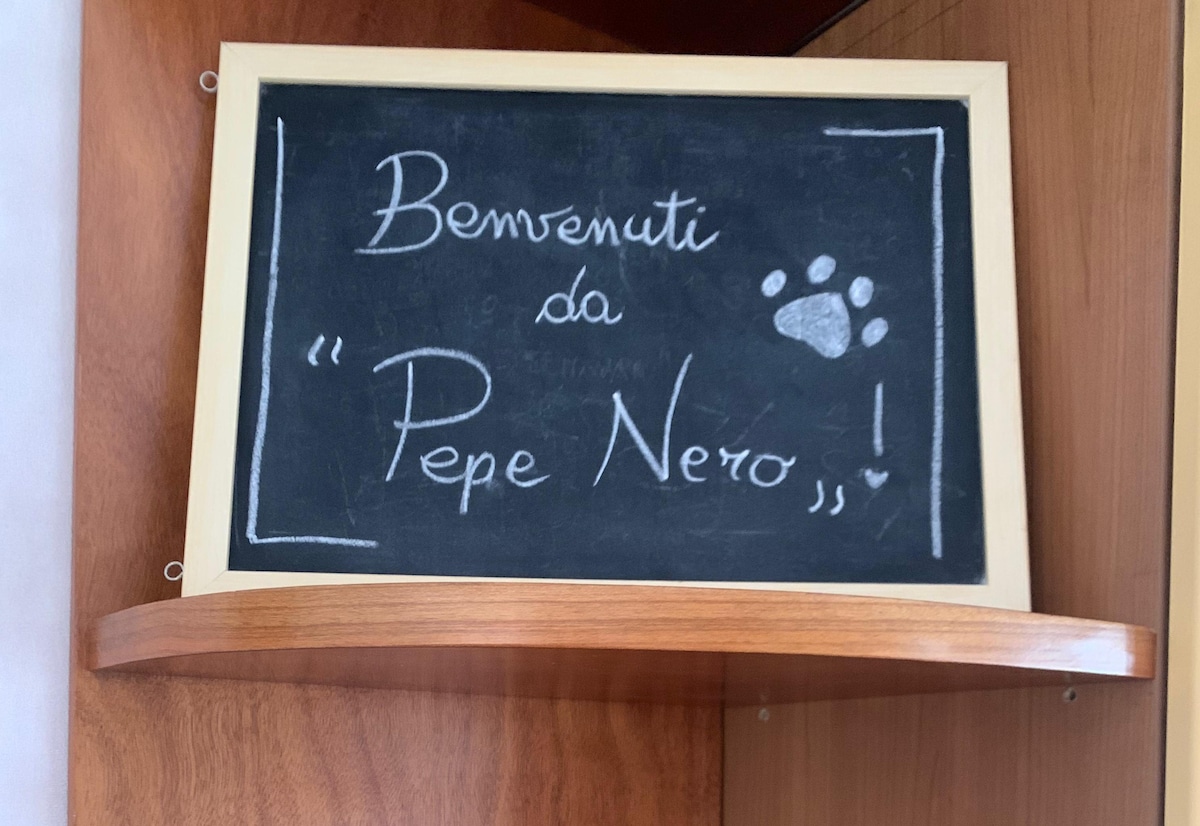 Benvenuti
da
“Pepe Nero„!